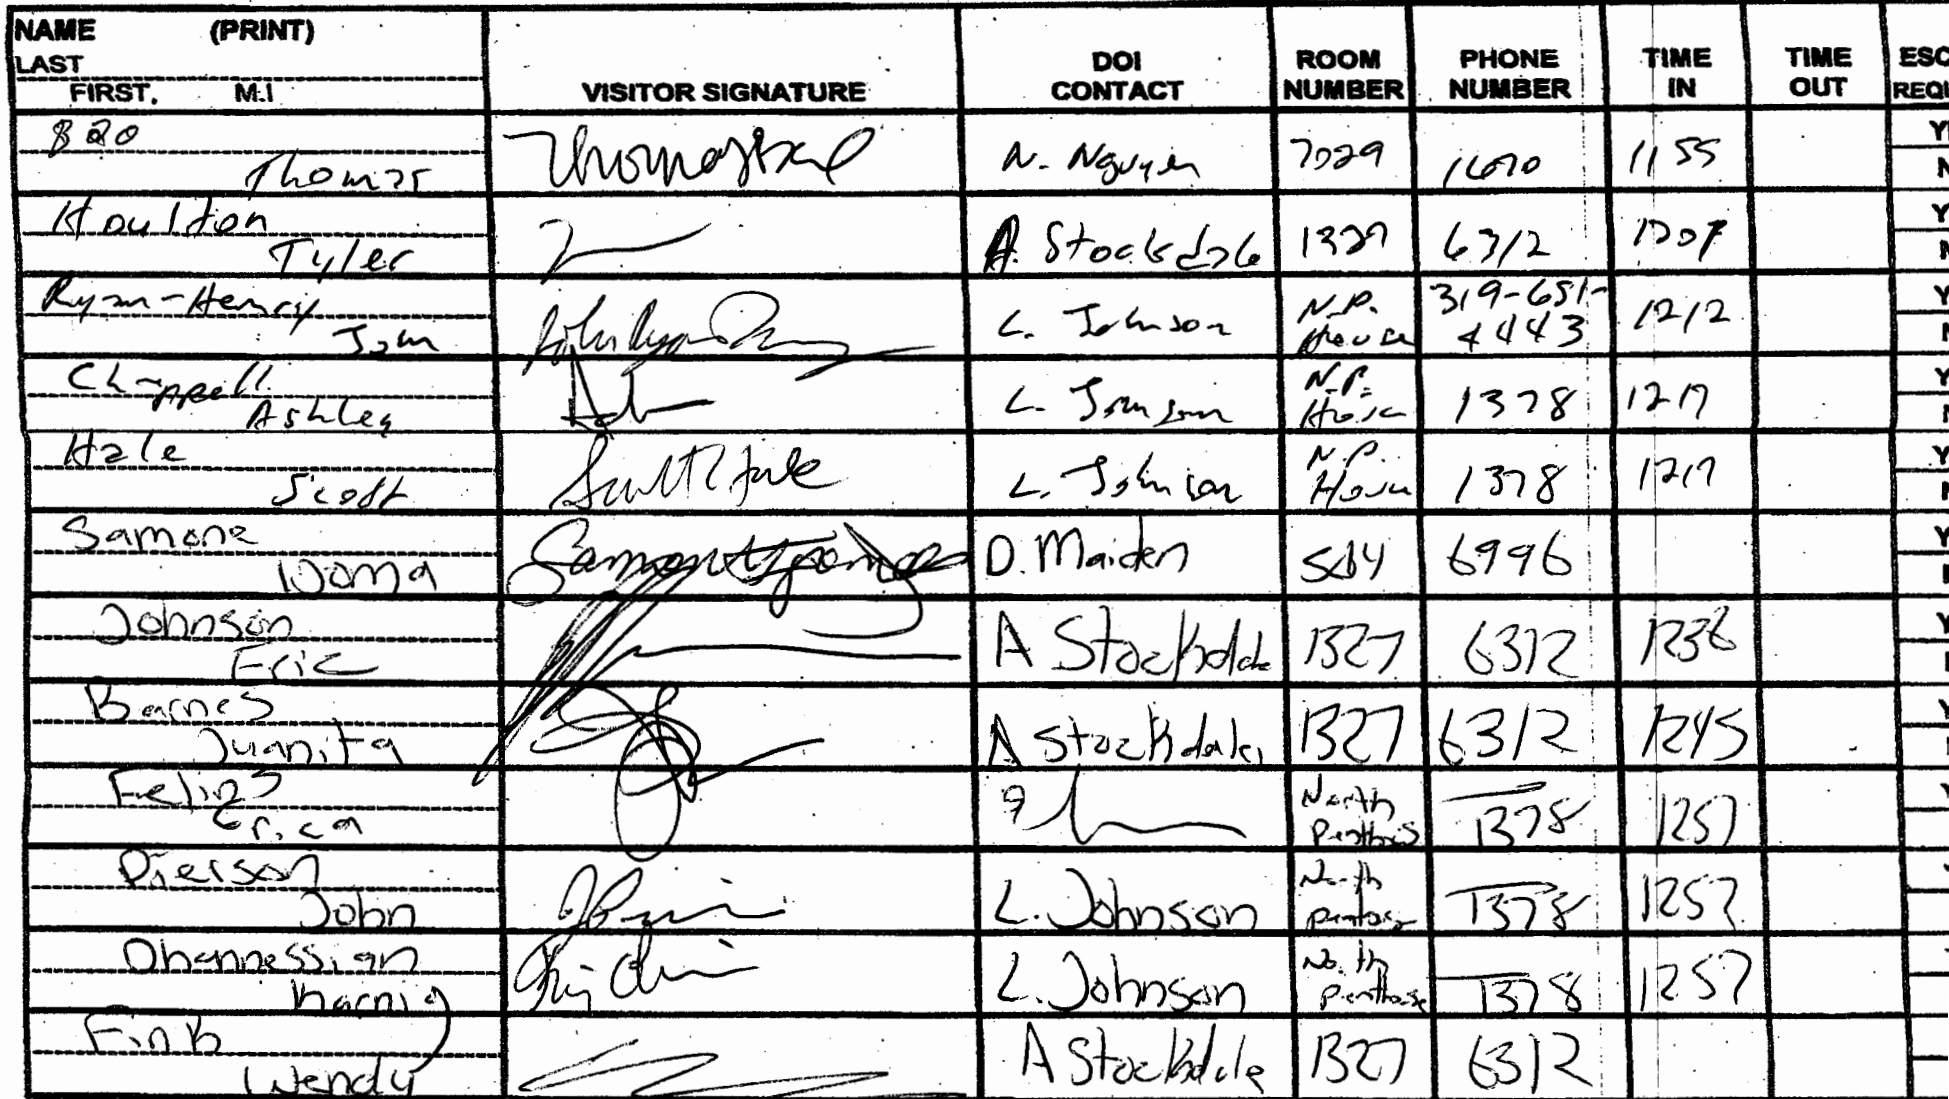 NAME (PRINT)
LAST
FIRST, M.I
VISITOR SIGNATURE
DOI CONTACT
ROOM NUMBER
PHONE NUMBER
TIME IN
TIME OUT
ESC
REQU
Thomas N. Nguyen 7029 1155
Houlton
Tyler A. Stockdale 1327 6312
Ryan-Henry
John L. Johnson N.P. House 319-651-4443 1212
Chappell
Ashley L. Johnson N.P. House 1378 1217
Hale
Scott L. Johnson N.P. House 1378 1217
Samone
D. Maiden 6996
Johnson
Eric A Stockdale 1327 6312 1236
Barnes
Juanita A Stockdale 1327 6312 1245
Erica North Penthouse 1378 1257
Pierson
John L. Johnson North Penthouse 1378 1257
Ohannessian
Karnig L. Johnson North Penthouse 1378 1257
Fink
Wendy A Stockdale 1327 6312